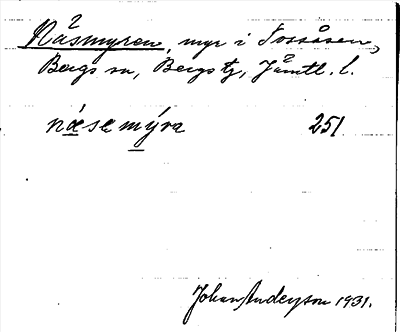 Råsmyren, myr i Tossåsen,
Bergs sn, Bergs tg, Jämtl. l.
ræ̀semýra 251
Johan Anderson 1931.